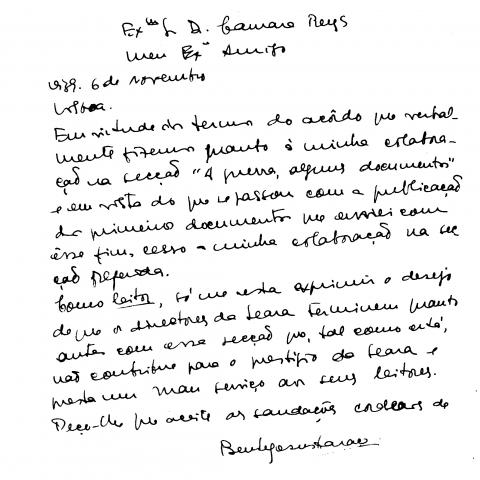 Ex.mo Sr. D. Camara Reys
Meu Exº Amigo
1939. 6 de novembro
Lisboa.
Em virtude dos termos do acôrdo que verbal-
mente fizemos quanto à minha colabora-
ção na secção "A guerra, alguns documentos"
e em vista do que se passou com a publicação
do primeiro documento que enviei com
êsse fim, cesso a minha colaboração na sec
ção referida.
Como leitor, só me resta exprimir o desejo
de que os directores da Seara terminem quanto
antes com essa secção que, tal como está,
não contribue para o prestígio da Seara e
presta um mau serviço aos seus leitores.
Peço-lhe que aceite as saudações cordeais de